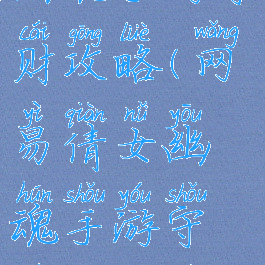 cái gōng lüè wǎng
财攻略(网
yì qiàn nǚ yōu
易倩女幽
hún shǒu yóu shǒu
魂手游守